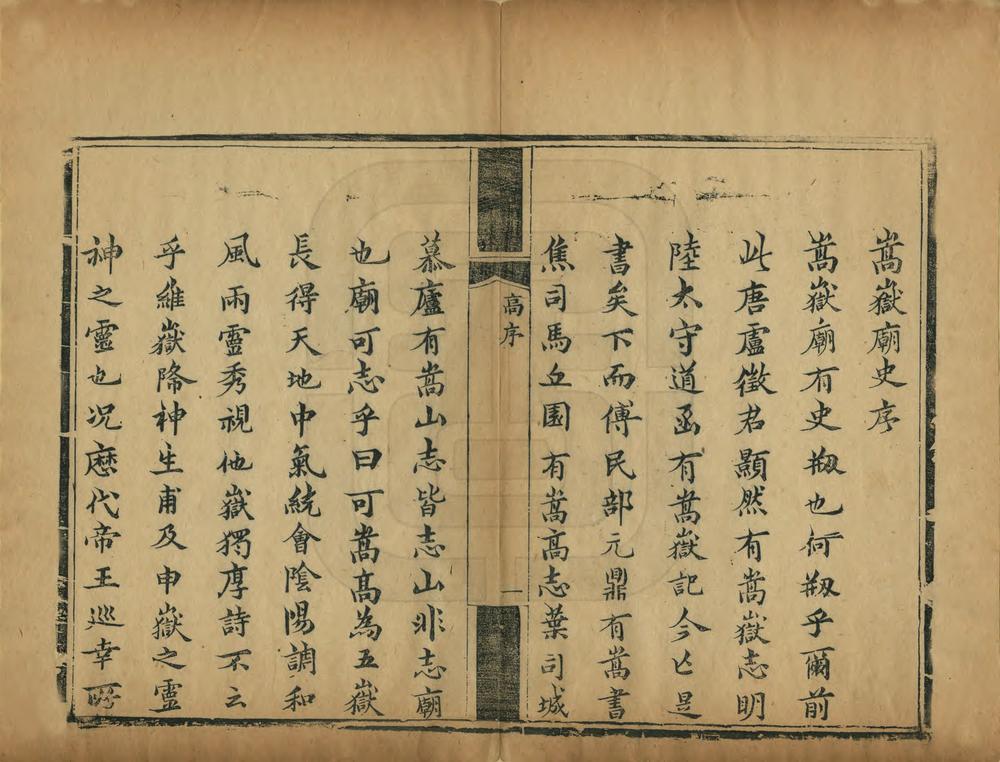 嵩嶽廟史序
嵩嶽廟有史剏也何剏乎爾前
此唐盧徵君顥然有嵩嶽志明
陸太守道函有嵩嶽記今亡是
書矣下而傅民部元鼎有嵩書
焦司馬丘園有嵩高志葉司城
高序
一
慕廬有嵩山志皆志山非志廟
也廟可志乎曰可嵩高為五嶽
長得天地中氣統會陰陽調和
風雨靈秀視他嶽獨厚詩不云
乎維嶽降神生甫及申嶽之靈
神之靈也况歷代帝王巡幸所